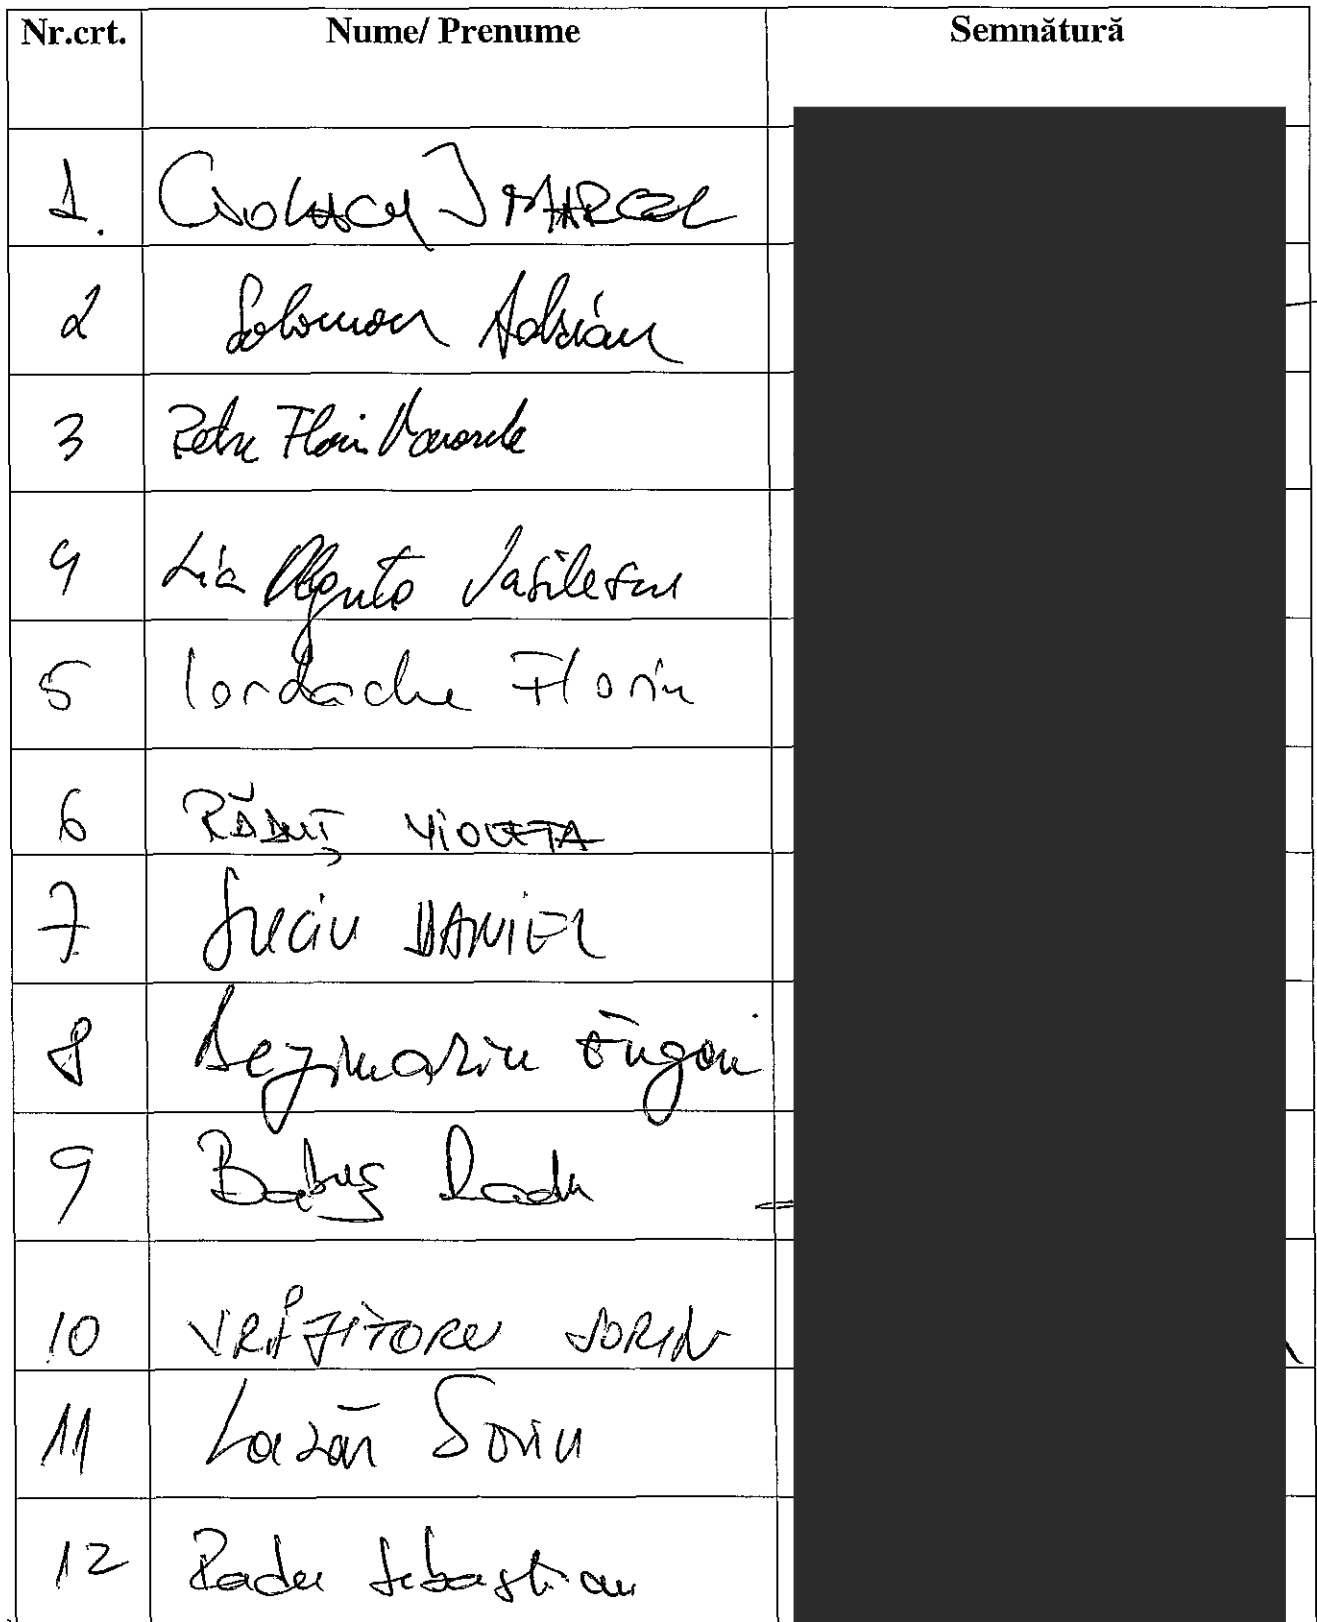 Nr.crt. Nume/ Prenume Semnătură
1. Ciolacu I MARCEL
2 Solomon Adrian
3 Petre Florin Manole
4 Lia Olguța Vasilescu
5 Iordache Florin
6 RĂDUȚ VIOLETA
7 Suciu DANIEL
8 Eugen
9 Babuș Radu
10 VRĂJITORU SORIN
11 Lazăr Sorin
12 Radu Sebastian